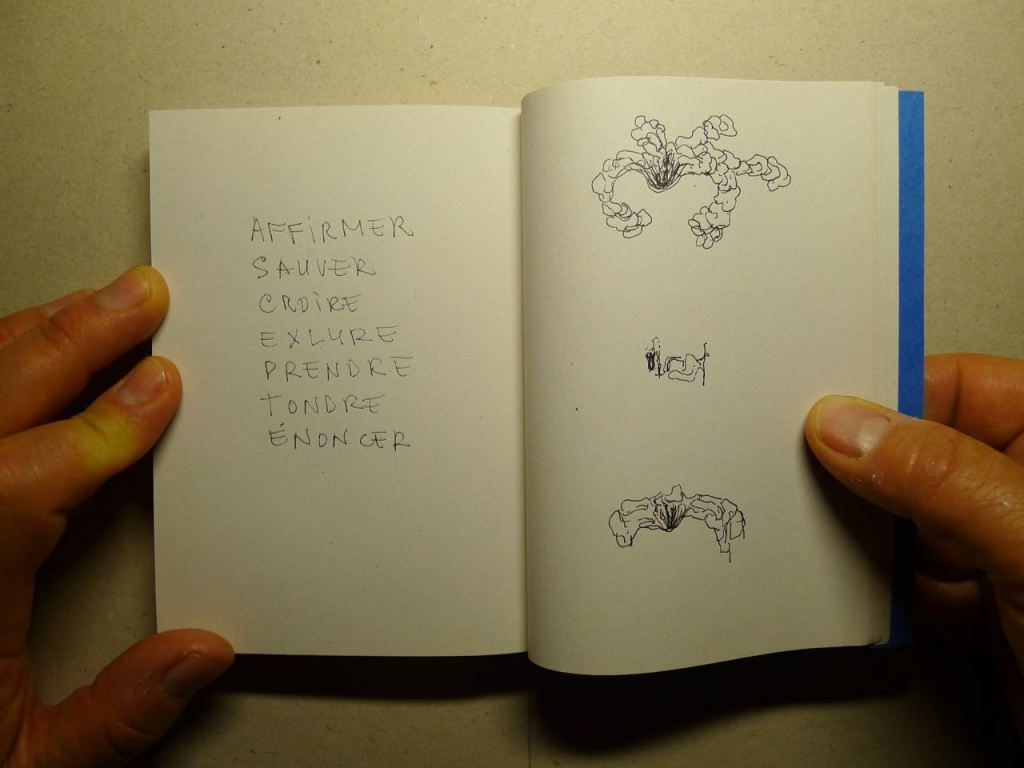 AFFiRMER
SAUVER
CROiRE
EXLURE
PRENDRE
TONDRE
ÉNONCER